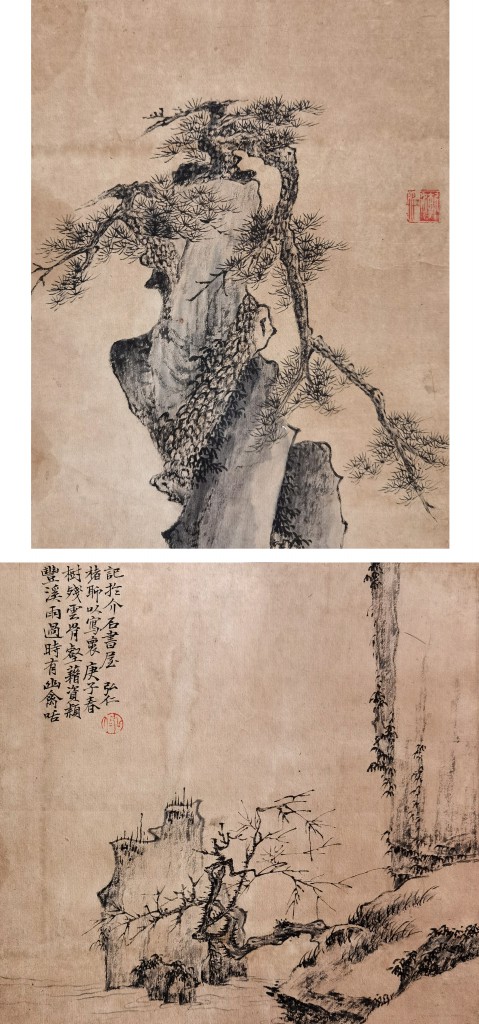 豐溪雨過時有幽禽咕
樹殘雲骨壑藉資穎
楮聊以寫衷庚子春
記於介石書屋 弘仁